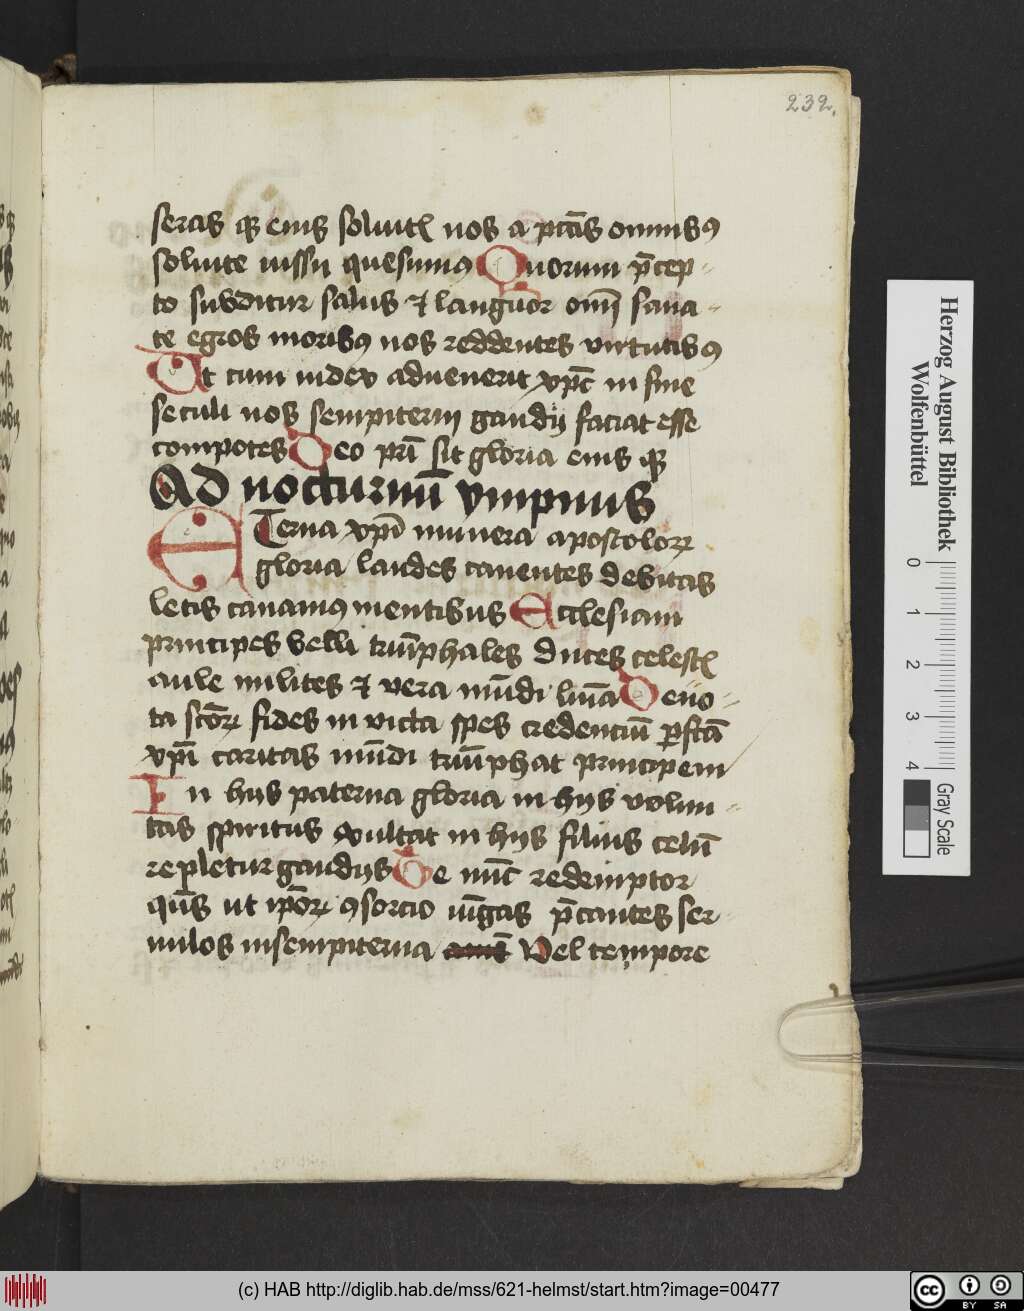 232.
seras qȝ eius soluitꝭ nos a pctīs omnibꝰ
soluite iussu quesumꝰ Quorum p̄cep-
to subditur salus ⁊ languor omī sana-
te egros moribꝰ nos reddentes virtutibꝰ
Ut cum iudex aduenerit xp̄c in fine
seculi nos sempiterni gaudij faciat esse
compotes Deo pr̄i sit gloria eius qȝ
Ad nocturnū ympnus
ETerna xp̄i munera apostoloꝝ
gloria laudes canentes debitas
letis canamꝰ mentibus Ecclesiam
principes belli triūphales duces celestꝭ
aule milites ⁊ vera mūdi luīa Deuo-
ta sctōꝝ fides in victa spes credenciū ꝑfctā
xp̄i caritas mūdi triūphat principem
In hijs paterna gloria in hijs volun-
tas spiritus exultat in hijs filius celū
repletur gaudijs Te nūc redemptor
quīs ut ip̄oꝝ ꝯsorcio iūgas p̄cantes ser-
uulos insempiterna Vel tempore
Herzog August Bibliothek
Wolfenbüttel
0 1 2 3 4
Gray Scale
(c) HAB http://diglib.hab.de/mss/621-helmst/start.htm?image=00477
cc BY SA